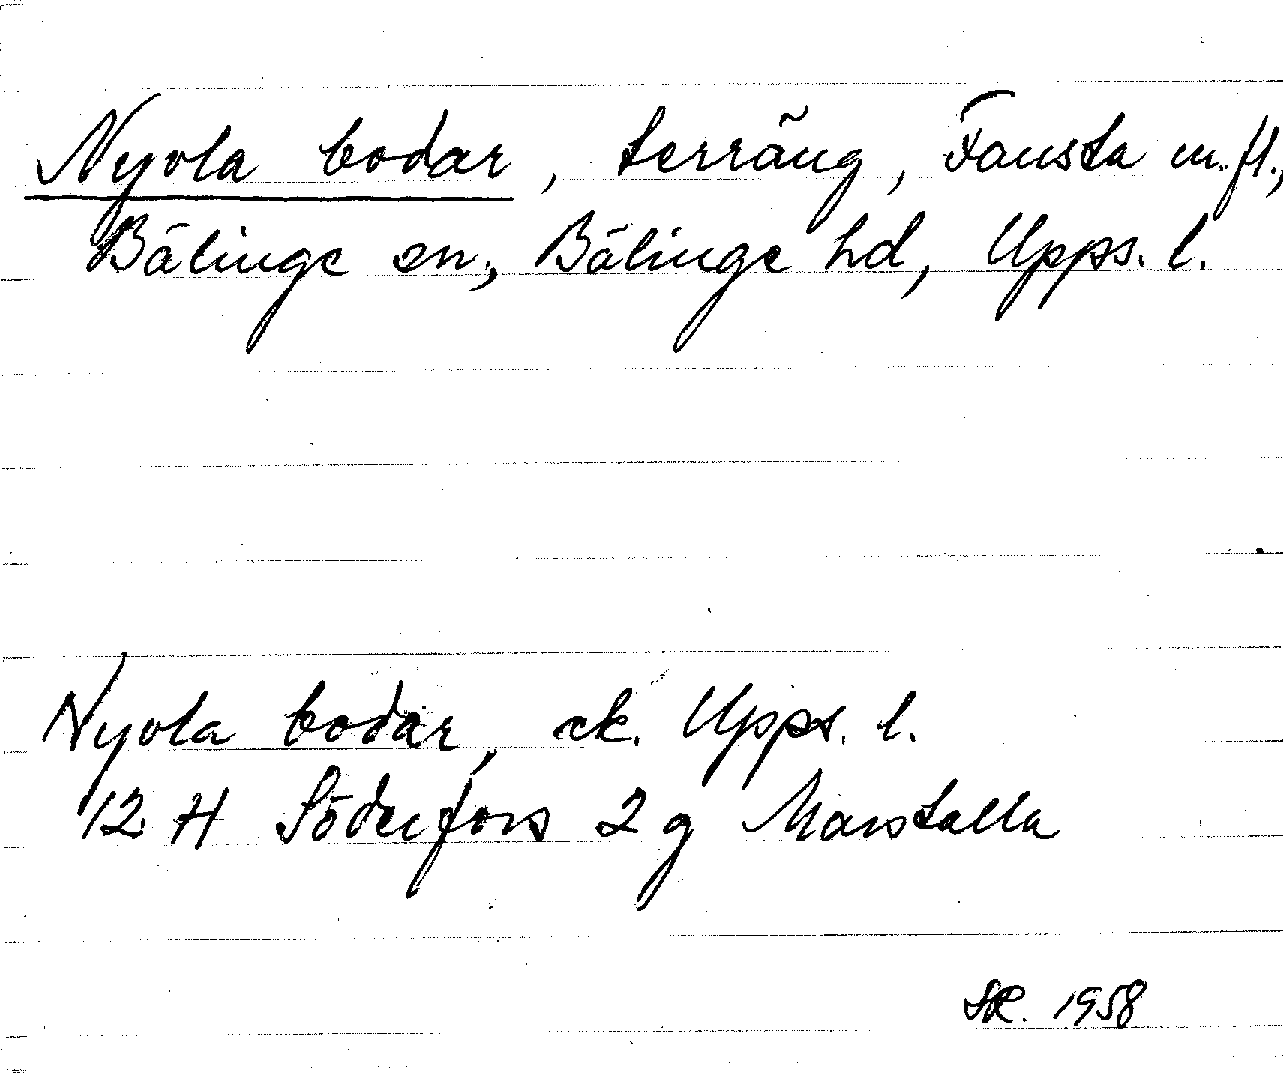 Nyvla bodar, terräng, Fansta m.fl.,
Bälinge sn, Bälinge hd, Upps. l.
Nyvla bodar, ek. Upps. l.
12 H Söderfors 2 g Marstalla
1958